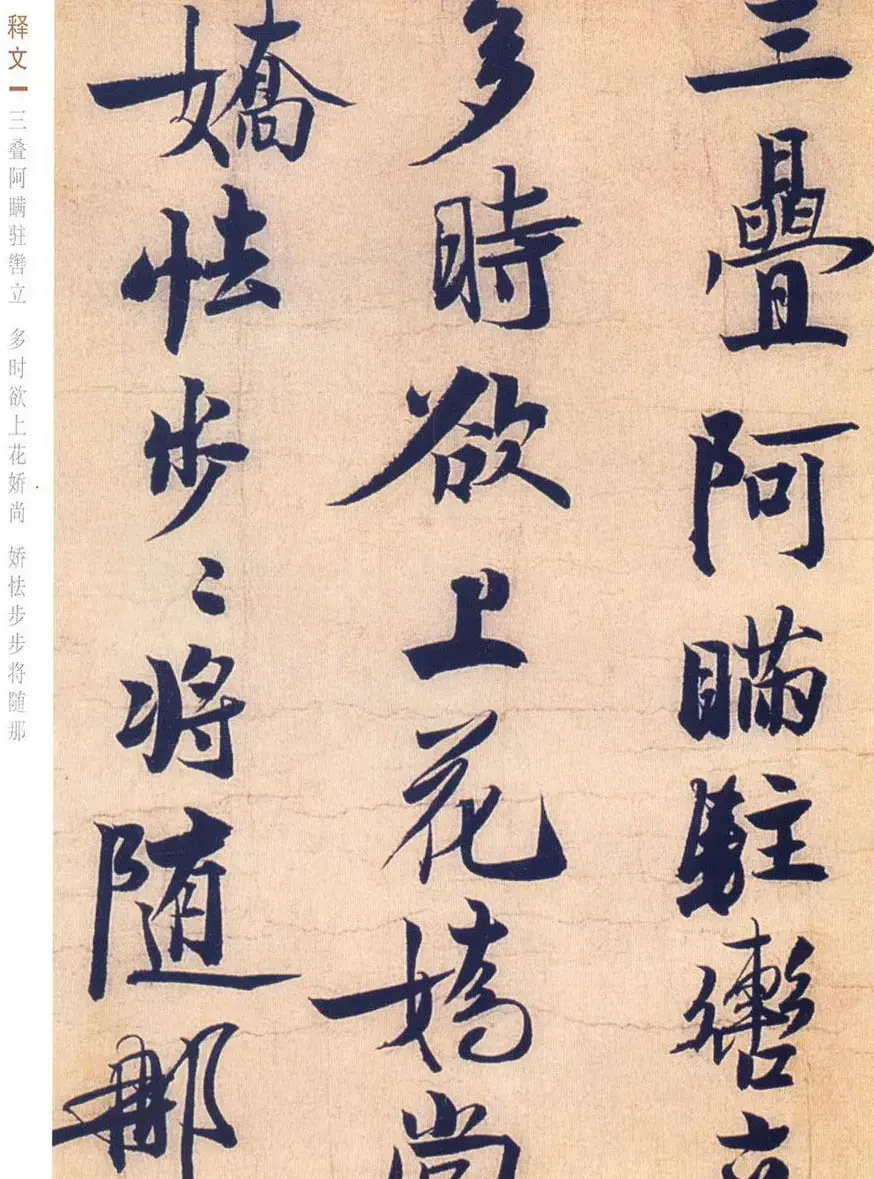 三疊阿瞞駐轡立
多時欲上花嬌尚
嬌怯步〻將隨那
释文
三叠阿瞒驻辔立 多时欲上花娇尚 娇怯步步将随那